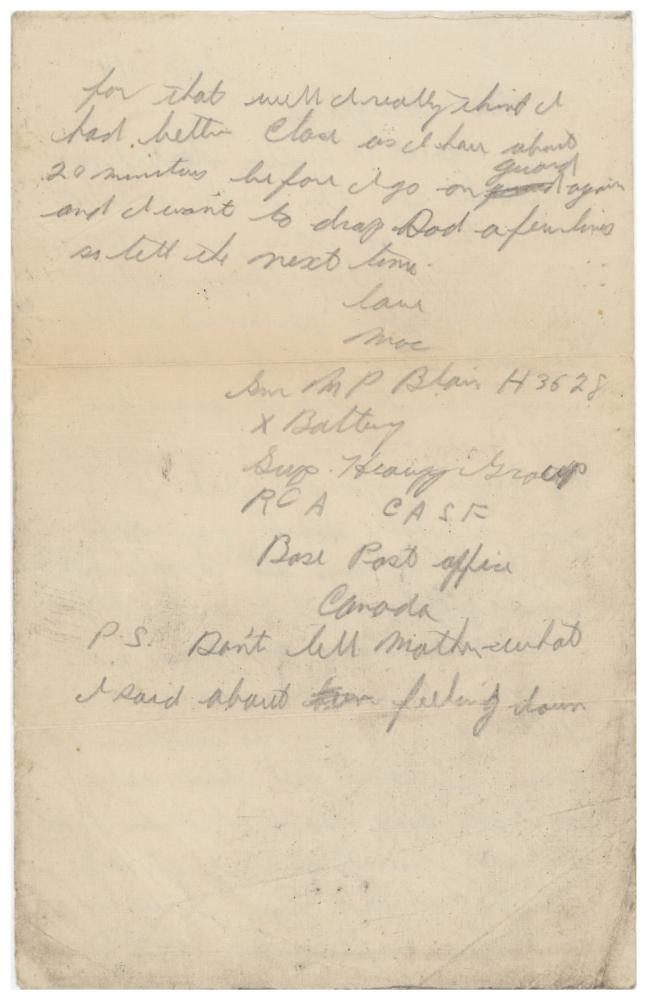 for that well I really think I
had better close as I have about
20 minutes before I go on guard again
and I want to drop Dad a few lines
so till the next time.
love
Mac
Gnr M P Blair H 3628
X Battery
Sup. Heavy Group
RCA CASF
Base Post office
Canada
P.S. Don't tell Mother what
I said about feeling down